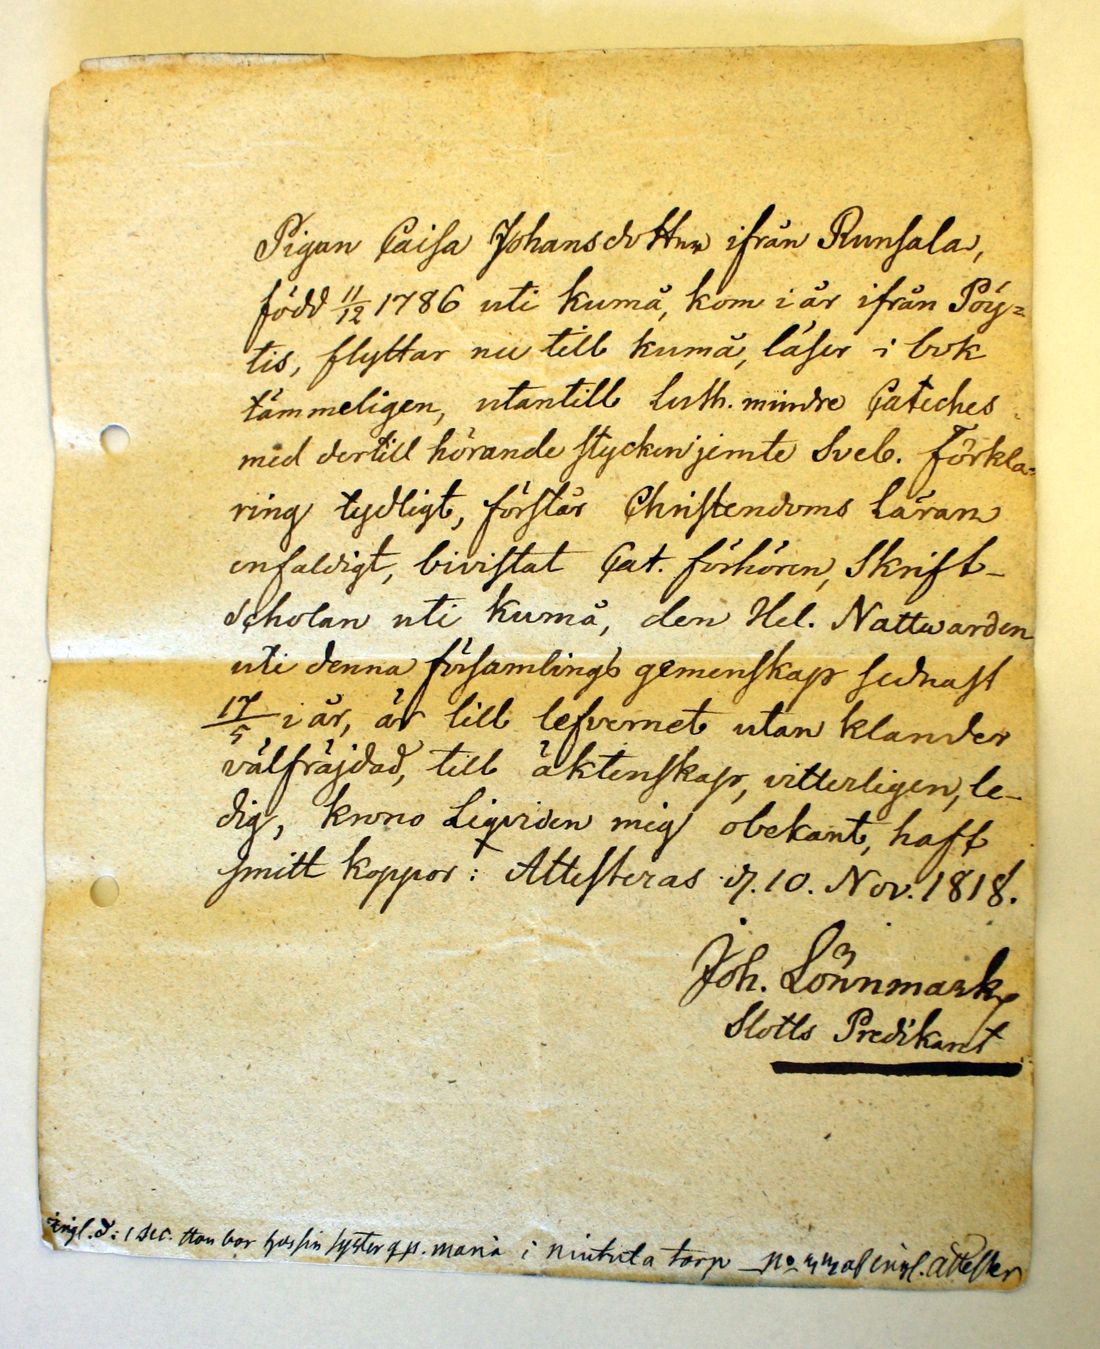 Pigan Caisa Johansdotter ifrån Runsala,
född 11/12 1786 uti kumå, kom i år ifrån Pöy=
tis, flyttar nu till kumå, läser i bok
tämmeligen, utantill Luth. mindre Cateches
med dertill hörande stycken jemte Sveb. Förkla=
ring tydligt, förstår Christendoms Läran
enfaldigt, bivistat Cat. förhören, Skrift-
Scholan uti kumå, den Hel. Nattwarden
uti denna församlings gemenskap sednast
17/5 i år, är till lefvernet utan klander
välfräjdad, till äktenskap, vitterligen, le-
dig, krono Liqviden mig obekant, haft
smitt koppor: Attesteras d. 10. Nov. 1818.
Joh. Lönnmark
Slotts Predikant
ingl. d: 1 Dec. Hon bor hos sin syster q.p. maria i torp No af ingl. attester